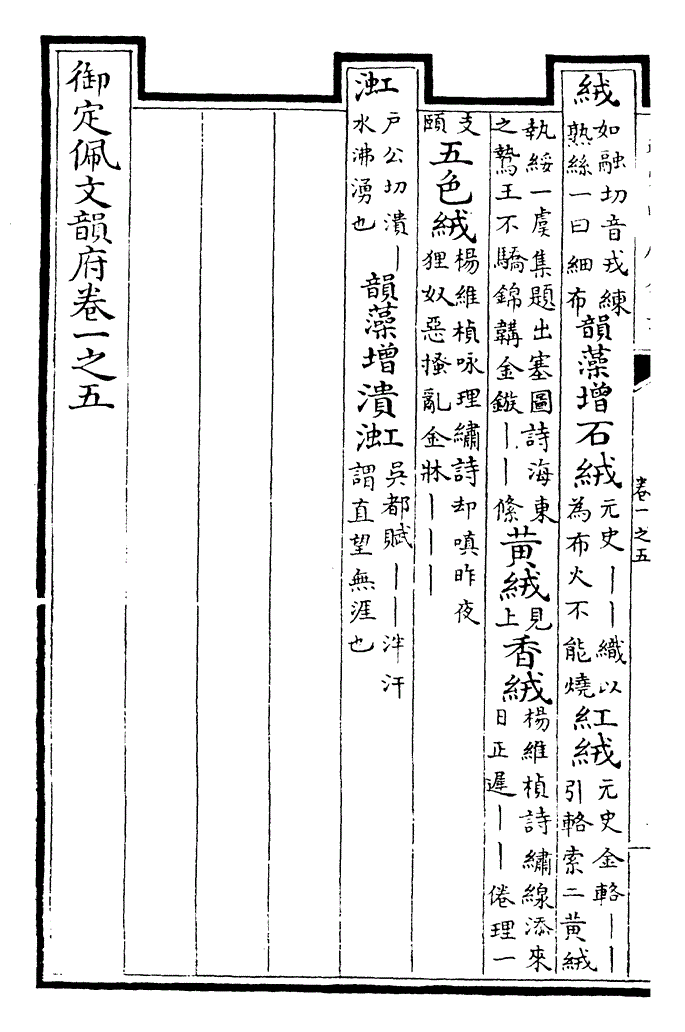 卷一之五
絨如融切音戎練熟絲一曰細布韻藻增石絨元史——織以為布火不能燒紅絨元史金輅——引輅索二黃絨
執綏一虞集題出塞圖詩海東之鷙王不驕錦韝金鏃——絛黃絨見上香絨楊維楨詩繡線添來日正遲——倦理一
支頤五色絨楊維楨咏理繡詩却嗔昨夜狸奴惡搔亂金牀———
渱戶公切潰—水沸湧也韻藻增潰渱吳都賦——泮汗謂直望無涯也
御定佩文韻府卷一之五